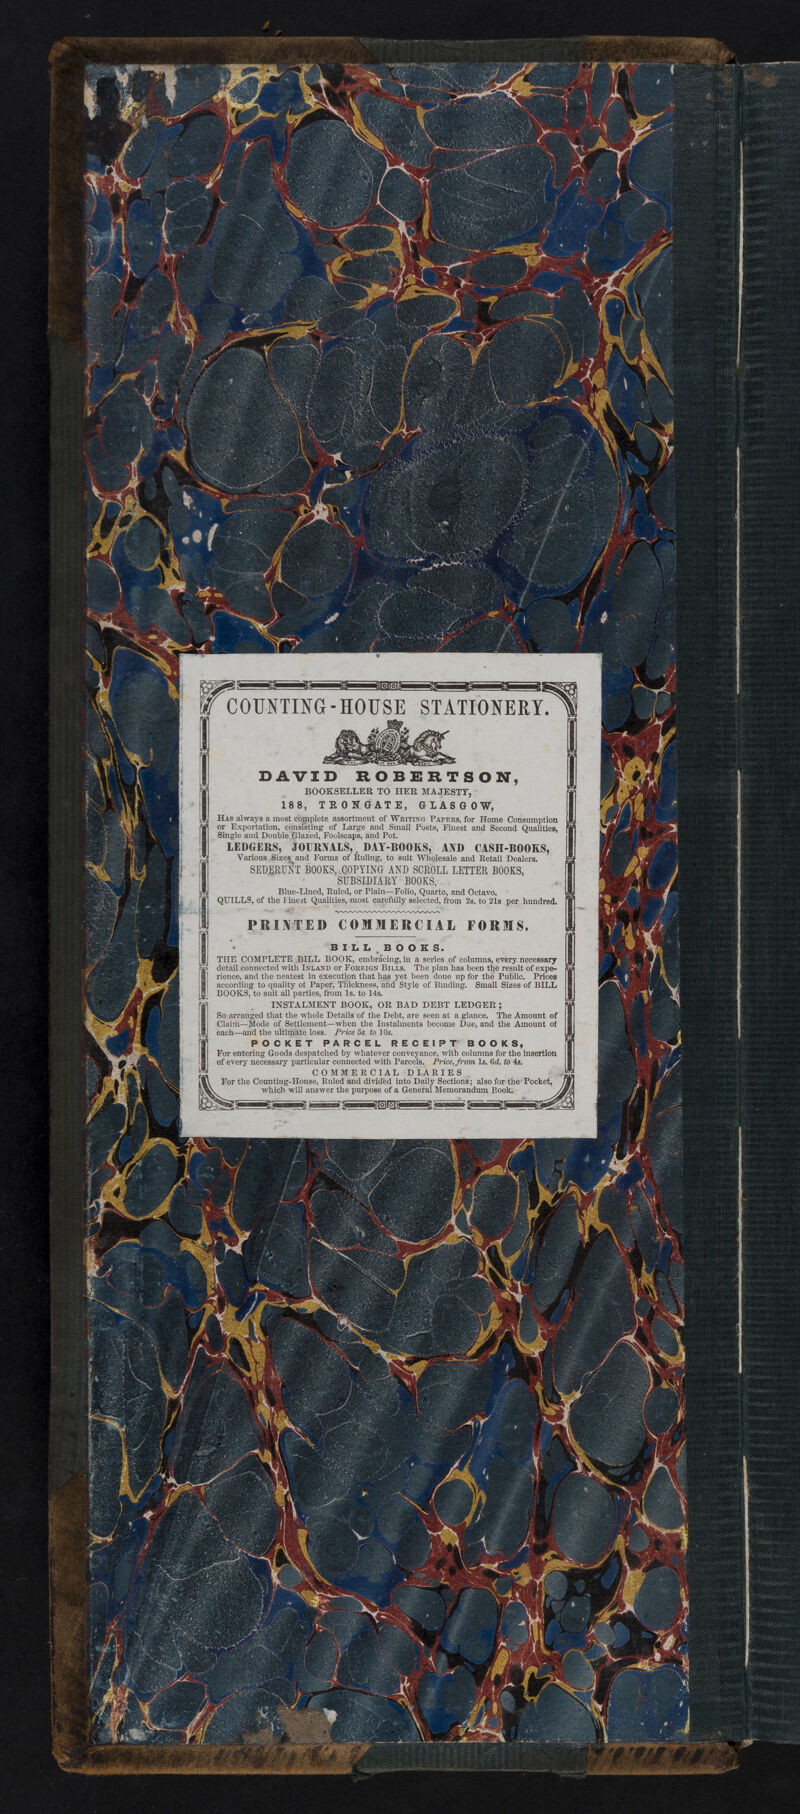 COUNTING-HOUSE STATIONERY.
DAVID ROBERTSON,
BOOKSELLER TO HER MAJESTY,
188, TRONGATE, GLASGOW,
Has always a most complete assortment of WRITING PAPERS, for Home Consumption
or Exportation, consisting of Large and Small Posts, Finest and Second Qualities,
Single and Double Glazed, Foolscaps, and Pot.
LEDGERS, JOURNALS, DAY-BOOKS, AND CASH-BOOKS,
Various Sizes and Forms of Ruling, to suit Wholesale and Retail Dealers.
SEDERUNT BOOKS, COPYING AND SCROLL LETTER BOOKS,
SUBSIDIARY BOOKS,
Blue-Lined, Ruled, or Plain—Folio, Quarto, and Octavo.
QUILLS, of the Finest Qualities, most carefully selected, from 2s. to 21s per hundred.
PRINTED COMMERCIAL FORMS.
BILL BOOKS.
THE COMPLETE BILL BOOK, embracing, in a series of columns, every necessary
detail connected with INLAND or FOREIGN BILLS. The plan has been the result of expe-
rience, and the neatest in execution that has yet been done up for the Public. Prices
according to quality of Paper, Thickness, and Style of Binding. Small Sizes of BILL
BOOKS, to suit all parties, from 1s. to 14s.
INSTALMENT BOOK, OR BAD DEBT LEDGER;
So arranged that the whole Details of the Debt, are seen at a glance. The Amount of
Claim—Mode of Settlement—when the Instalments become Due, and the Amount of
each—and the ultimate loss. Price 5s. to 10s.
POCKET PARCEL RECEIPT BOOKS,
For entering Goods despatched by whatever conveyance, with columns for the insertion
of every necessary particular connected with Parcels. Price, from 1s. 6d. to 4s.
COMMERCIAL DIARIES
For the Counting-House, Ruled and divided into Daily Sections; also for the Pocket,
which will answer the purpose of a General Memorandum Book.